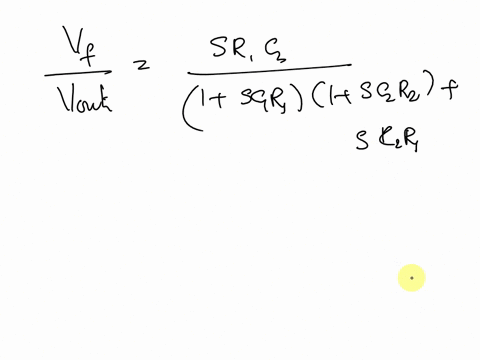 V_f / Vout = SR₁C₂ / (1 + SC₁R₁)(1 + SC₂R₂) +
S C₂R₁